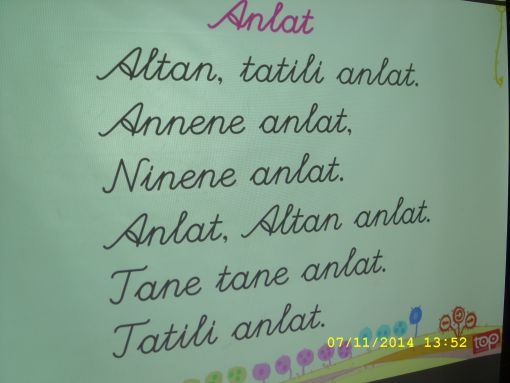 Anlat
Altan, tatili anlat.
Annene anlat,
Ninene anlat.
Anlat, Altan anlat.
Tane tane anlat.
Tatili anlat.
07/11/2014 13:52
top